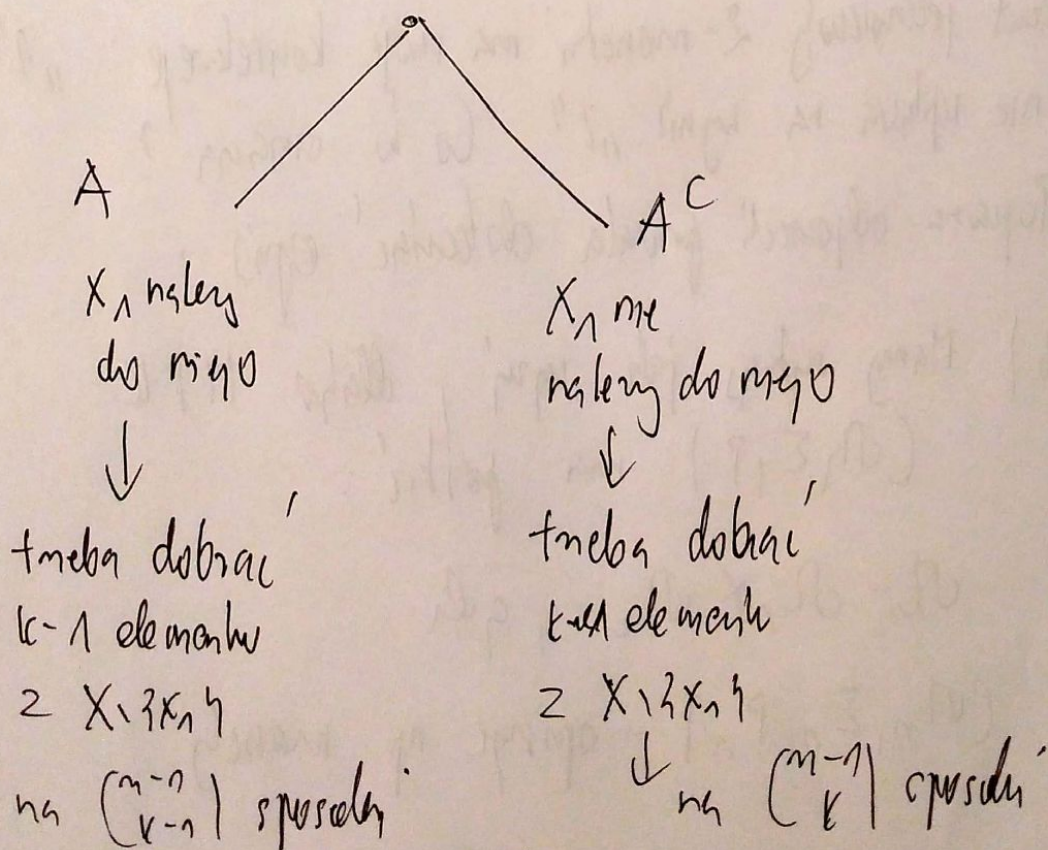 A
x₁ należy
do niego
↓
trzeba dobrać
k-1 elementów
z X\{x₁}
na (n-1 k-1) sposobów
A^C
x₁ nie
należy do niego
↓
trzeba dobrać
elementów
z X\{x₁}
↓
na (n-1 k) sposobów